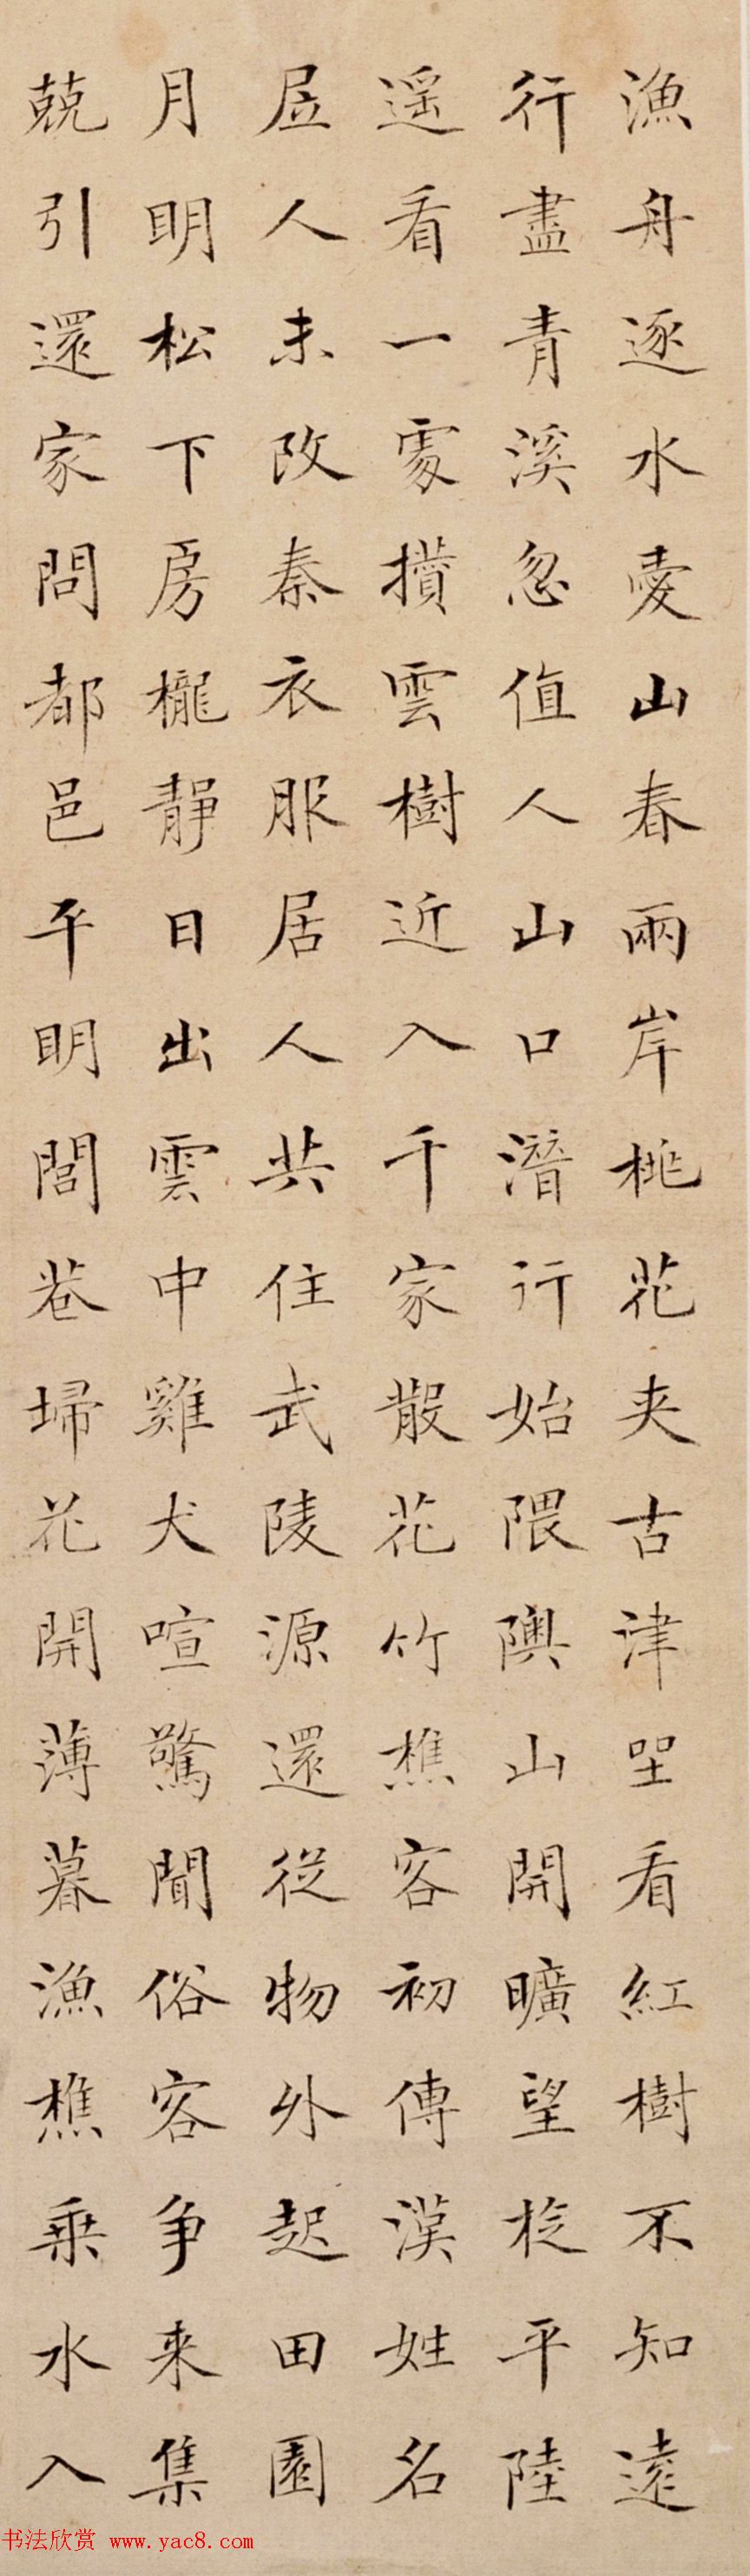 漁舟逐水愛山春兩岸桃花夾古津坐看紅樹不知遠
行盡青溪忽值人山口潛行始隈隩山開曠望旋平陸
遥看一處攢雲樹近入千家散花竹樵客初傳漢姓名
居人未改秦衣服居人共住武陵源還從物外起田園
月明松下房櫳靜日出雲中雞犬喧驚聞俗客争来集
競引還家問都邑平明閭巷埽花開薄暮漁樵乗水入
书法欣赏 www.yac8.com